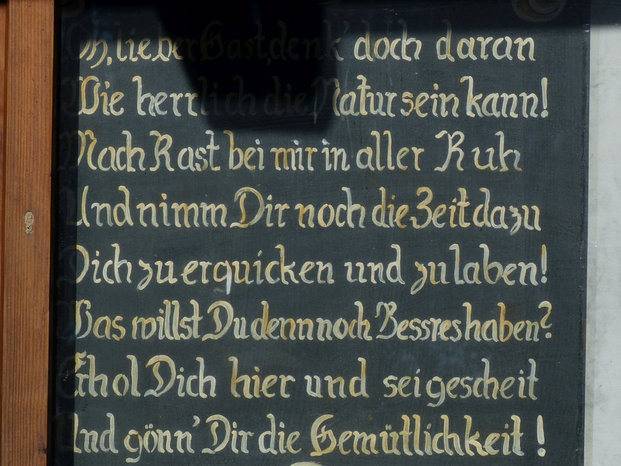 Oh, lieber Gast, denk' doch daran
Wie herrlich die Natur sein kann!
Mach Rast bei mir in aller Ruh
Und nimm Dir noch die Zeit dazu
Dich zu erquicken und zu laben!
Was willst Du denn noch Bessres haben?
Erhol Dich hier und sei gescheit
Und gönn' Dir die Gemütlichkeit!